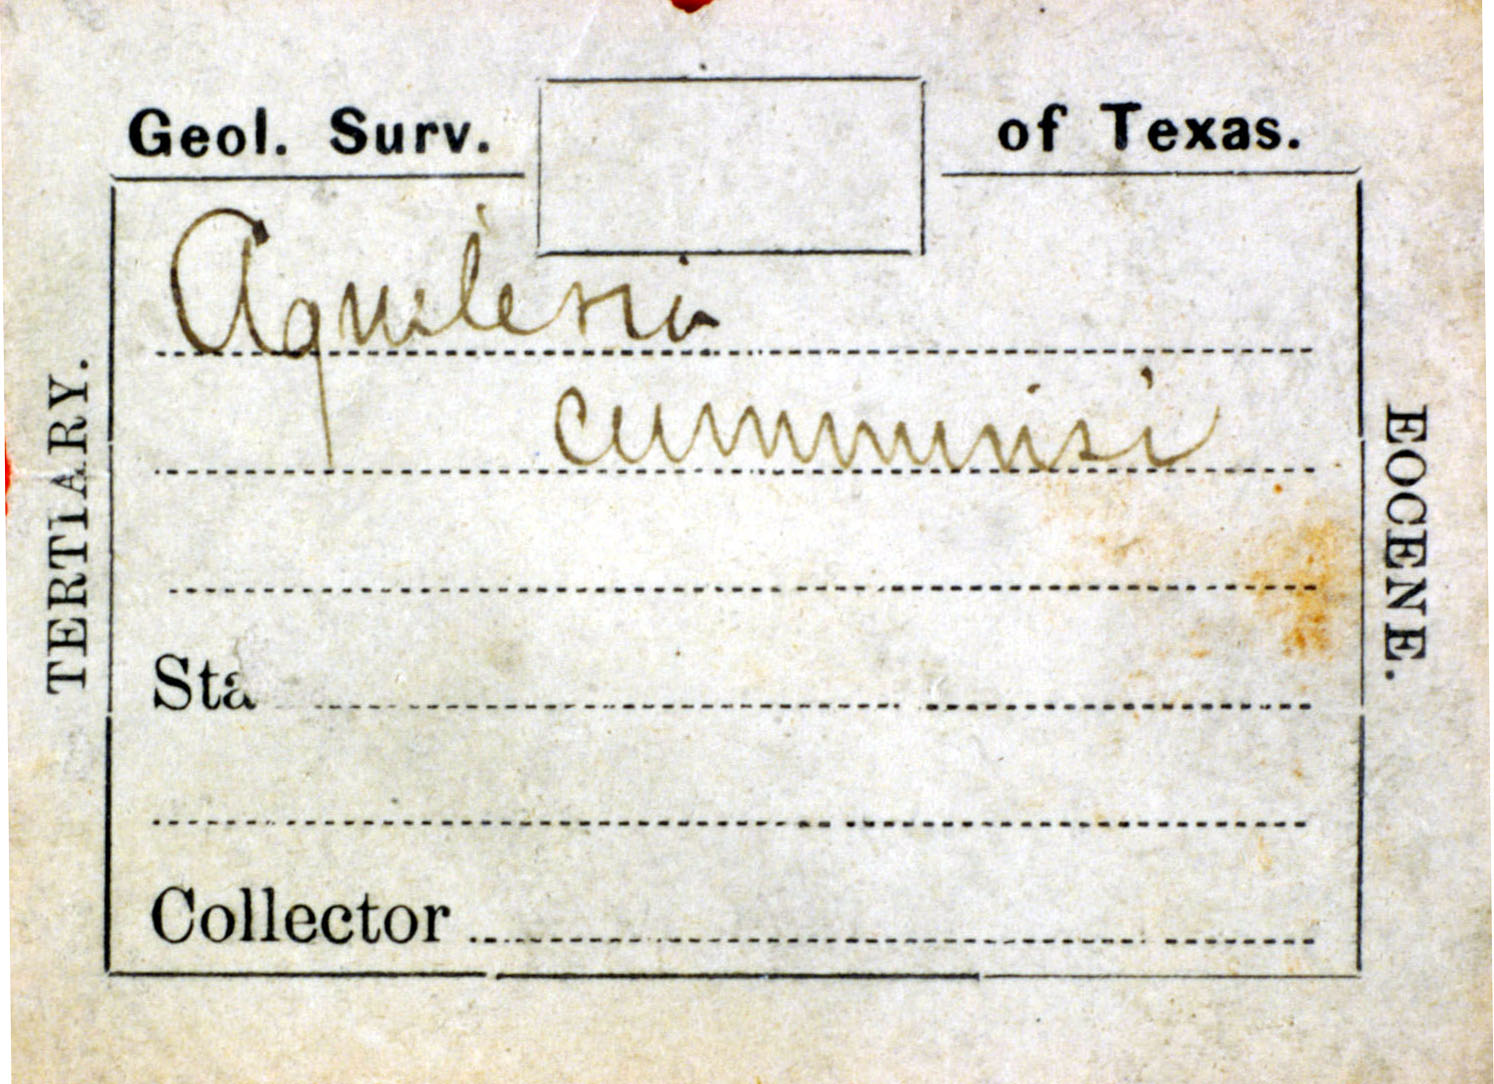 Geol. Surv. of Texas.
Aguileria
cumminsi
Sta
Collector
TERTIARY.
EOCENE.